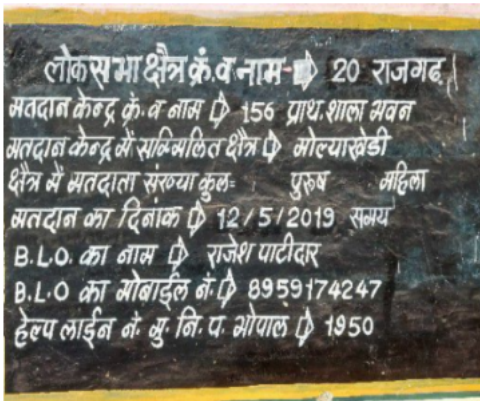 लोकसभा क्षैत्र क्रं. व नाम- ⇨ 20 राजगढ़
मतदान केन्द्र क्रं. व नाम ⇨ 156 प्राथ. शाला भवन
मतदान केन्द्र में सम्मिलित क्षैत्र ⇨ मोल्याखेडी
क्षैत्र में मतदाता संख्या कुल= पुरूष महिला
मतदान का दिनांक ⇨ 12/5/2019 समय
B.L.O. का नाम ⇨ राजेश पाटीदार
B.L.O का मोबाईल नं. ⇨ 8959174247
हेल्प लाईन नं. मु. नि. प. भोपाल ⇨ 1950